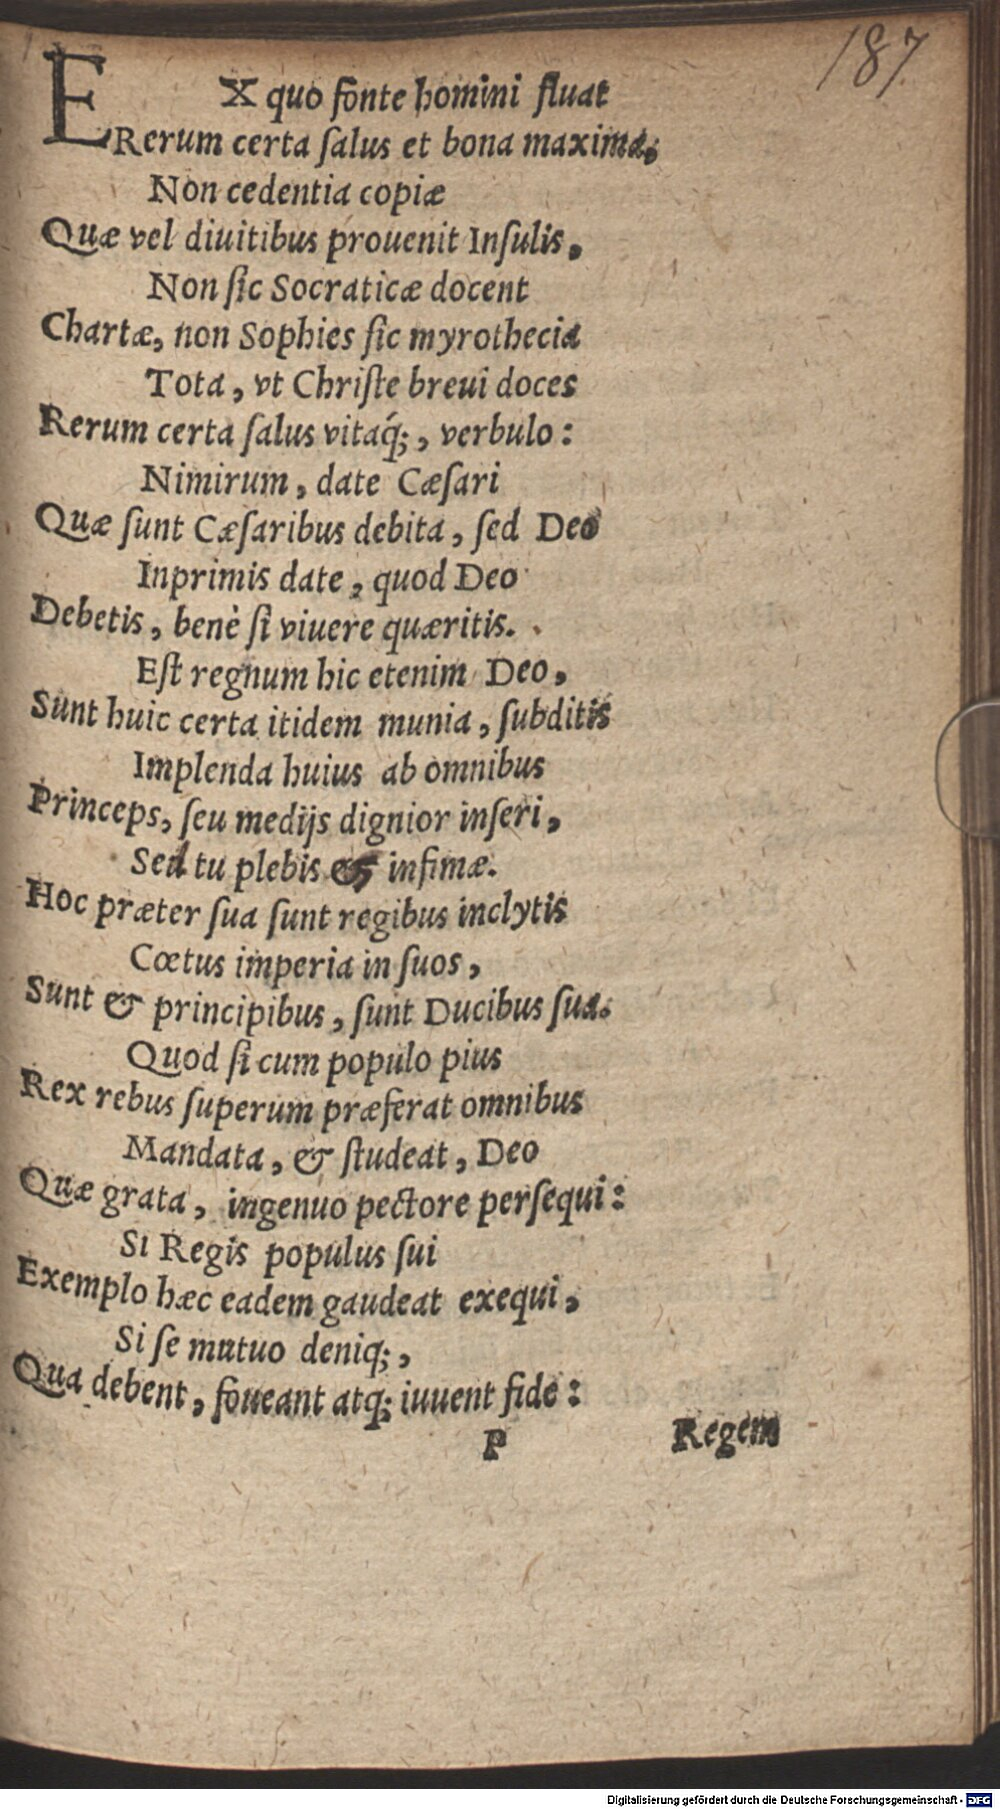 187
EX quo fonte homini fluat
Rerum certa ſalus et bona maxima,
Non cedentia copiæ
Quæ vel diuitibus prouenit Inſulis,
Non ſic Socraticæ docent
Chartæ, non Sophies ſic myrothecia
Tota, vt Chriſte breui doces
Rerum certa ſalus vitaq́;, verbulo:
Nimirum, date Cæſari
Quæ ſunt Cæſaribus debita, ſed Deo
Inprimis date, quod Deo
Debetis, benè ſi viuere quæritis.
Eſt regnum hic etenim Deo,
Sunt huic certa itidem munia, ſubditis
Implenda huius ab omnibus
Princeps, ſeu medijs dignior inſeri,
Sed tu plebis & infimæ.
Hoc præter ſua ſunt regibus inclytis
Cœtus imperia in ſuos,
Sunt & principibus, ſunt Ducibus ſua.
Quod ſi cum populo pius
Rex rebus ſuperum præferat omnibus
Mandata, & ſtudeat, Deo
Quæ grata, ingenuo pectore perſequi:
Si Regis populus ſui
Exemplo hæc eadem gaudeat exequi,
Si ſe mutuo deniq;,
Qua debent, foueant atq; iuuent fide:
P Regem
Digitalisierung gefördert durch die Deutsche Forschungsgemeinschaft - DFG